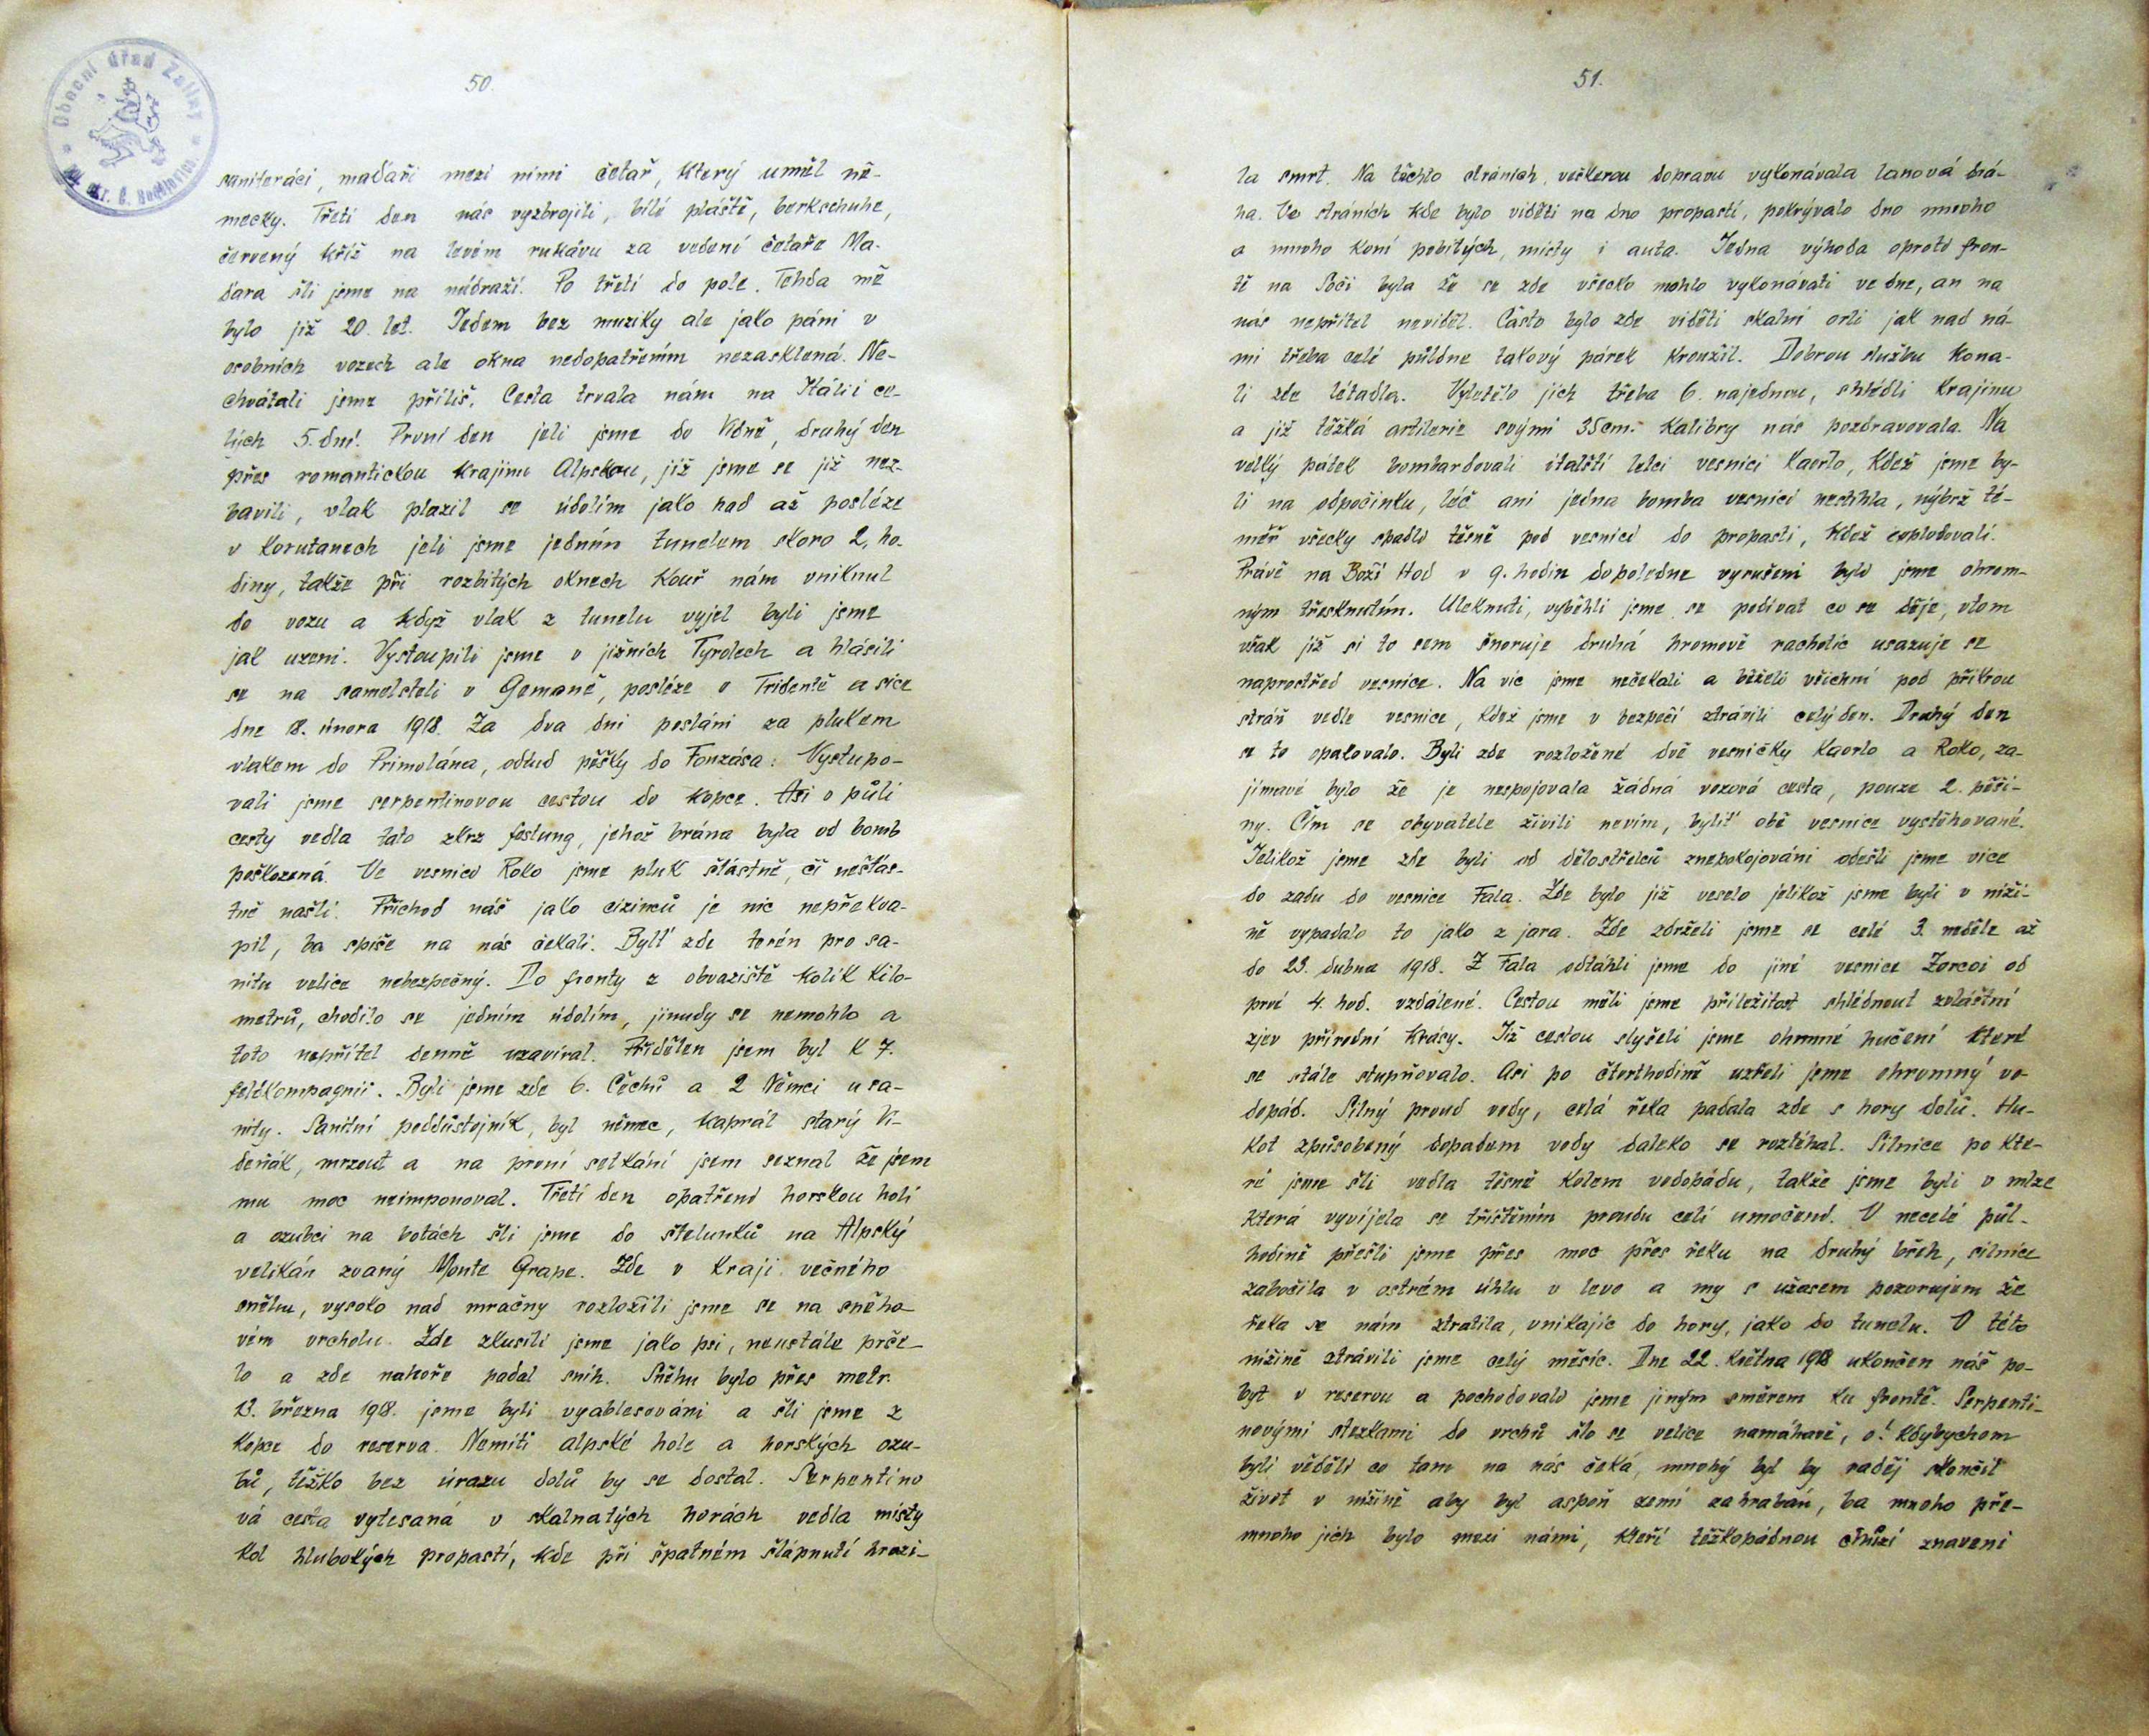 Obecní úřad Zaliny
50.
saniteráci, maďaři mezi nimi četař, který uměl ně-
mecky. Třetí den nás vyzbrojili, bílé pláště, berkschuhe,
červený kříž na levém rukávu za vedení četaře Ma-
ďara šli jsme na nádraží. Po třetí do pole. Tehda mě
bylo již 20. let. Jedem bez muziky ale jako páni v
osobních vozech ale okna nedopatřením nezasklená. Ne-
chvátali jsme příliš. Cesta trvala nám na Itálii ce-
lých 5. dní. První den jeli jsme do Vídně, druhý den
přes romantickou krajinu Alpskou, již jsme se již nez-
bavili, vlak plazil se údolím jako had až posléze
v Korutanech jeli jsme jedním tunelem skoro 2, ho-
diny, takže při rozbitých oknech kouř nám vniknul
do vozu a když vlak z tunelu vyjel byli jsme
jak uzeni. Vystoupili jsme v jižních Tyrolech a hlásili
se na samelsteli v Gemaně, posléze v Tridentě a sice
dne 18. února 1918. Za dva dni posláni za plukem
vlakem do Primolána, odtud pěšky do Fonzása. Vystupo-
vali jsme serpentinovou cestou do kopce. Asi v půli
cesty vedla tato skrz festung, jehož brána byla od bomb
poškozená. Ve vesnici Roko jsme pluk šťástně, či nešťás-
tně našli. Příchod náš jako cizinců je nic nepřekva-
pil, ba spíše na nás čekali. Bylť zde terén pro sa-
nitu velice nebezpečný. Do fronty z obvaziště kolik kilo-
metrů, chodilo se jedním údolím, jinudy se nemohlo a
toto nepřítel denně uzavíral. Přidělen jsem byl k 7.
feldkompagnii. Byli jsme zde 6. Čechů a 2 Němci u sa-
nity. Sanitní poddůstojník, byl němec, kaprál starý Ví-
deňák, mrzout a na první setkání jsem seznal že jsem
mu moc neimponoval. Třetí den opatřeni horskou holí
a ozubci na botách šli jsme do štelunků na Alpský
velikán zvaný Monte Grape. Zde v kraji večného
sněhu, vysoko nad mračny rozložili jsme se na sněho-
vém vrcholu. Zde zkusili jsme jako psi, neustále prše-
lo a zde nahoře padal sníh. Sněhu bylo přes metr.
13. března 1918. jsme byli vyablesováni a šli jsme z
kopce do reserva. Nemíti alpské hole a horských ozu-
bů, těžko bez úrazu dolů by se dostal. Serpentino
vá cesta vytesaná v skalnatých horách vedla místy
kol hlubokých propastí, kde při špatném šlápnutí hrozi-
51.
la smrt. Na těchto stráních, veškerou dopravu vykonávala lanová drá-
ha. Ve stráních kde bylo viděti na dno propastí, pokrývalo dno mnoho
a mnoho koní pobitých, místy i auta. Jedna výhoda oproti fron-
tě na Soči byla že se zde všecko mohlo vykonávati ve dne, an na
nás nepřítel neviděl. Často bylo zde viděti skalní orli jak nad ná-
mi třeba celé půldne takový párek kroužil. Dobrou službu kona-
li zde létadla. Vyletělo jich třeba 6. najednou, shlédli krajinu
a již těžká artilerie svými 35cm. kalibry nás pozdravovala. Na
velký pátek bombardovali italští letci vesnici Kaorlo, kdež jsme by-
li na odpočinku, léč ani jedna bomba vesnici nestihla, nýbrž té-
měř všecky spadly těsně pod vesnicí do propasti, kdež explodovali.
Právě na Boží Hod v 9. hodin dopoledne vyrušeni byli jsme ohrom-
ným třesknutím. Uleknuti, vyběhli jsme se podívat co se děje, vtom
však již si to sem šneruje druhá hromově rachotíc usazuje se
naprostřed vesnice. Na víc jsme nečekali a běželi všichni pod příkrou
stráň vedle vesnice, kdež jsme v bezpečí strávili celý den. Druhý den
se to opakovalo. Byli zde rozložené dvě vesničky Kaorlo a Roko, za-
jímavé bylo že je nespojovala žádná vozová cesta, pouze 2. pěši-
ny. Čím se obyvatele živili nevím, byliť obě vesnice vystěhované.
Jelikož jsme zde byli od dělostřelců znepokojováni odešli jsme více
do zadu do vesnice Fala. Zde bylo již veselo jelikož jsme byli v níži-
ně vypadalo to jako z jara. Zde zdrželi jsme se celé 3. neděle až
do 23. dubna 1918. Z Fala odtáhli jsme do jiné vesnice Zorcoi od
prvé 4. hod. vzdálené. Cestou měli jsme příležitost shlédnout zvláštní
zjev přírodní krásy. Již cestou slyšeli jsme ohromné hučení které
se stále stupňovalo. Asi po čtvrthodině uzřeli jsme ohromný vo-
dopád. Silný proud vody, celá řeka padala zde s hory dolů. Hu-
kot způsobený dopadem vody daleko se rozléhal. Silnice po kte-
ré jsme šli vedla těsně kolem vodopádu, takže jsme byli v mlze
která vyvíjela se tříštěním proudu celí umočeni. V necelé půl-
hodině přešli jsme přes moc přes řeku na druhý břeh, silnice
zabočila v ostrém úhlu v levo a my s užasem pozorujem že
řeka se nám ztratila, vnikajíc do hory, jako do tunelu. V této
nížině strávili jsme celý měsíc. Dne 22. května 1918 ukončen náš po-
byt v reservu a pochodovali jsme jiným směrem ku frontě. Serpenti-
novými stezkami do vrchů šlo se velice namáhavě, o! kdybychom
byli věděli co tam na nás čeká, mnohý byl by raděj skončil
život v nížině aby byl aspoň zemí zahrabán, ba mnoho pře-
mnoho jich bylo mezi námi, kteří těžkopádnou chůzí znaveni